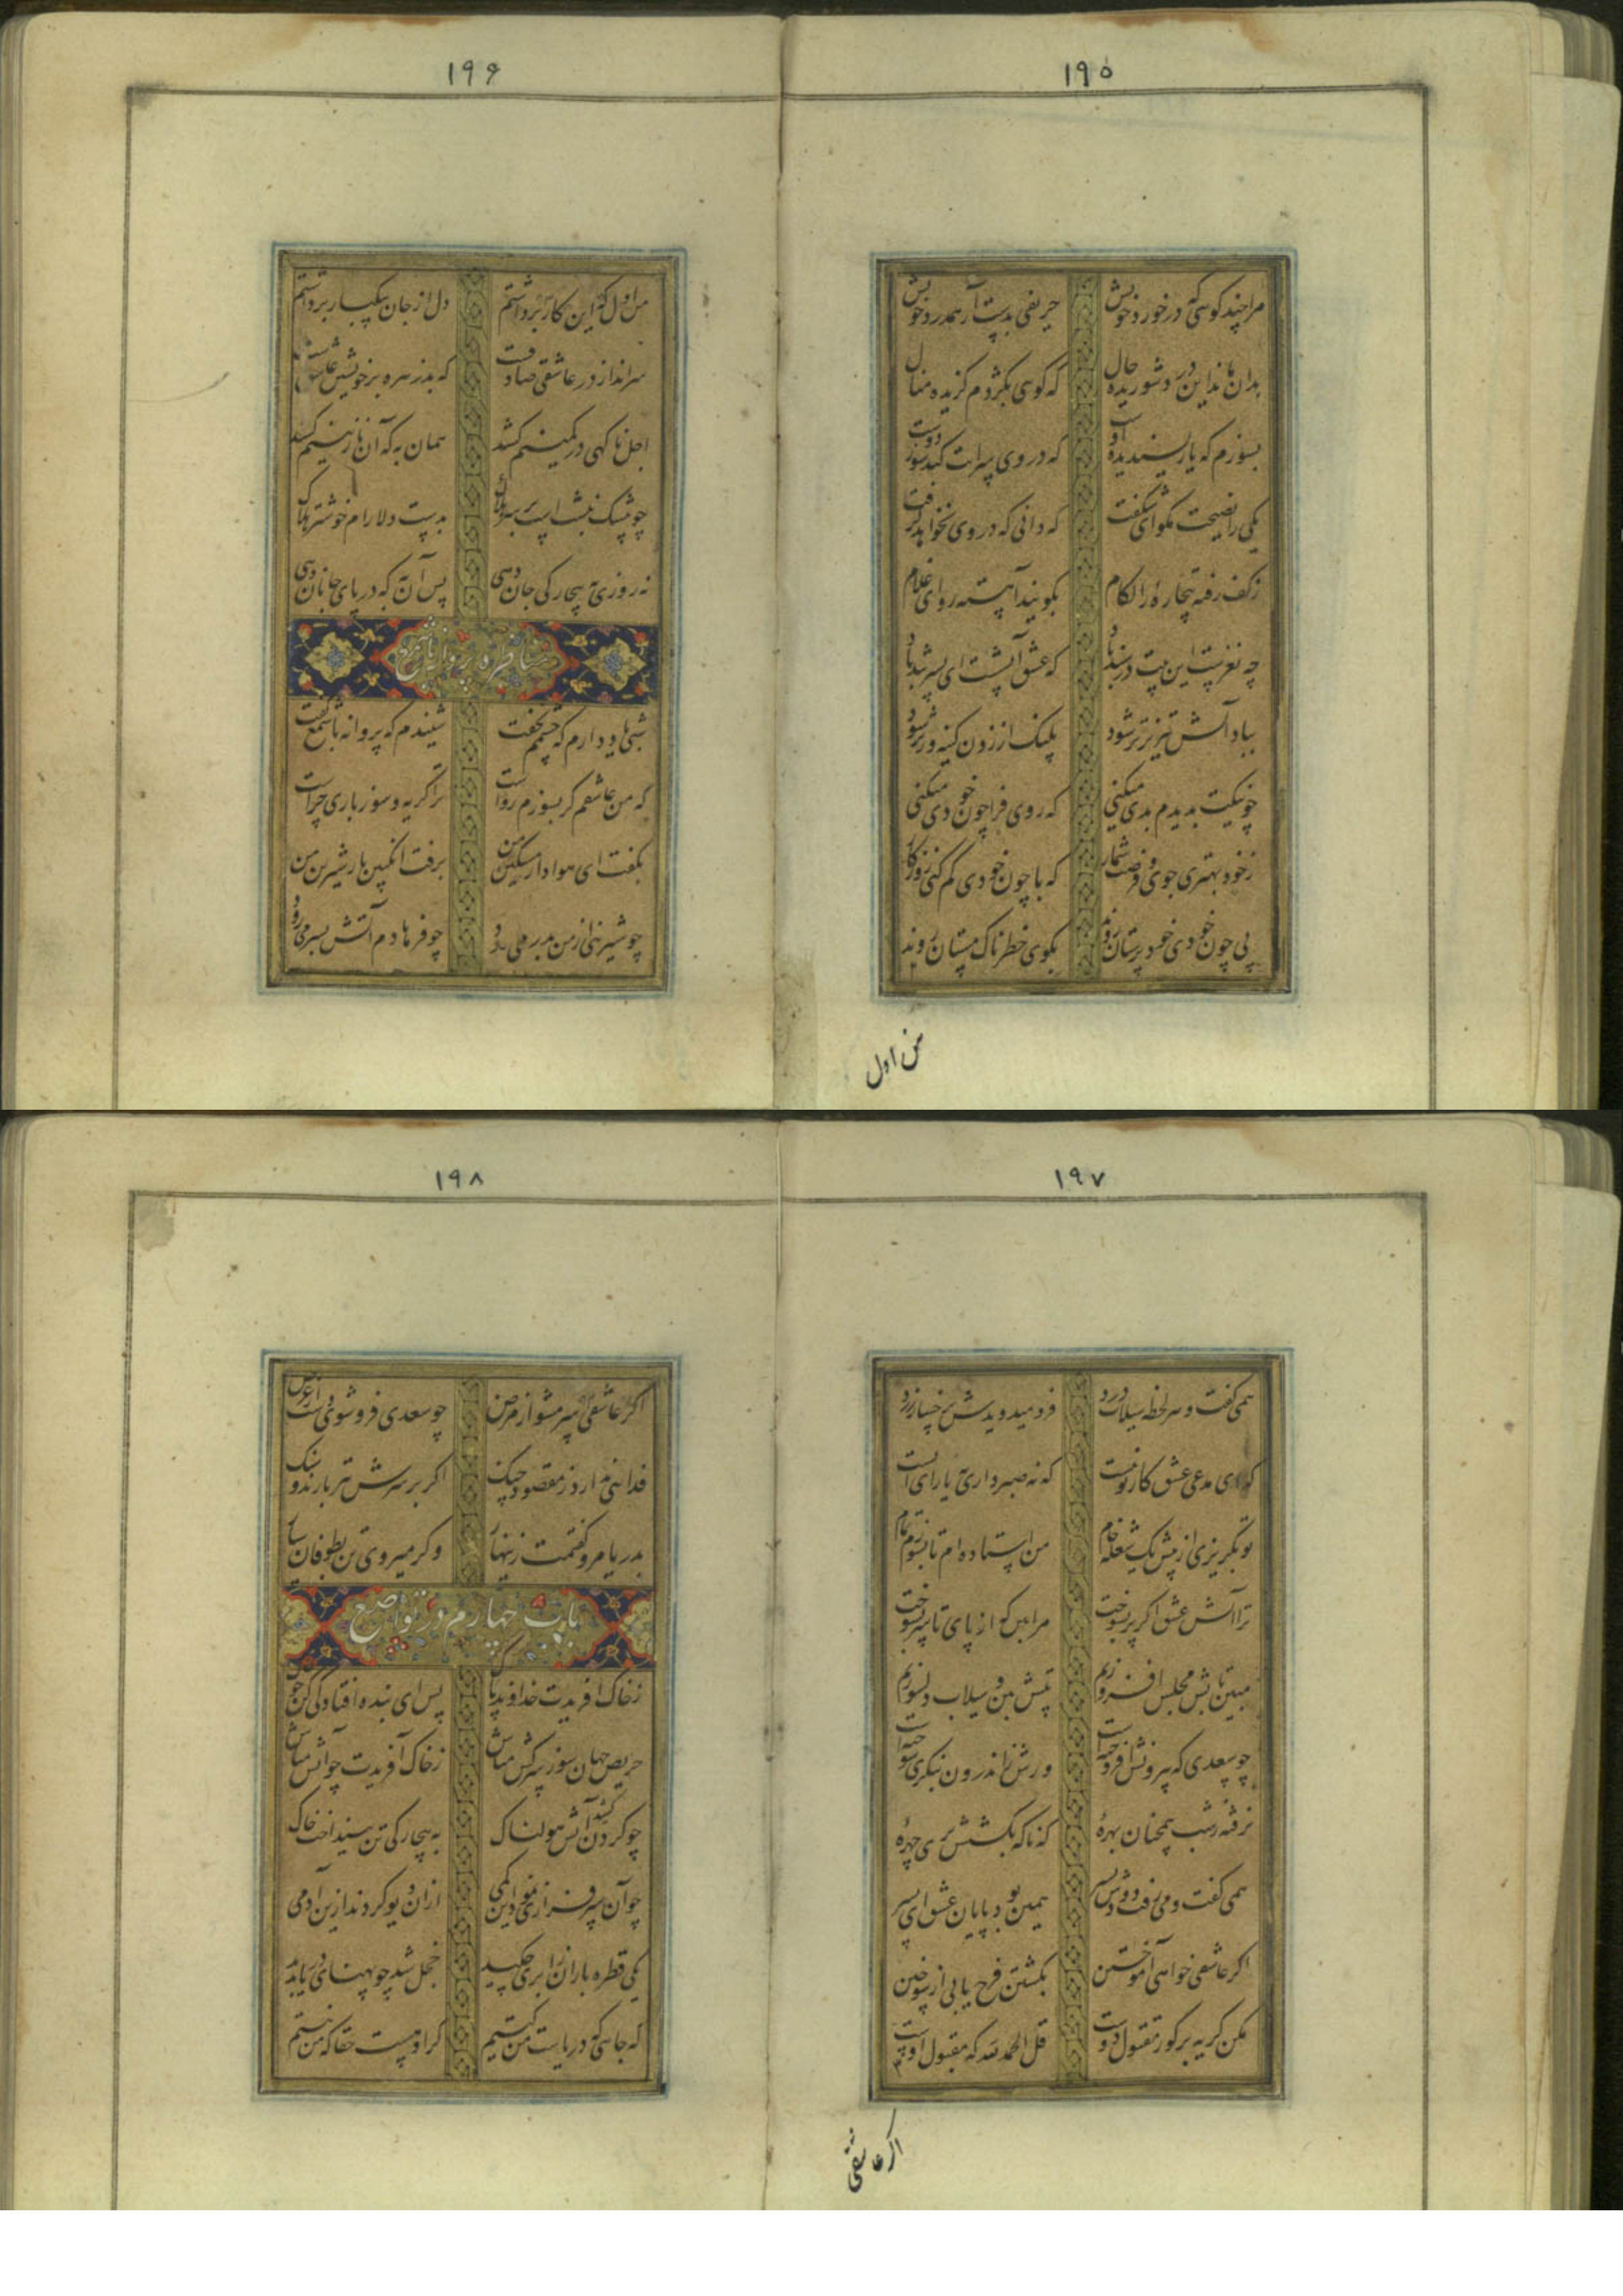 ۱۹۵
مرا چند کوئی که در خورد خویش حریفی بدست آر همدرد خویش
بدان ماند این در شوریده حال که کوئی بکژدم کزیده منال
بسوزم که یار پسندیده اوست که در وی سرایت کند سوز دوست
یکی را نصیحت مکو ای شکفت که دانی که در وی نخواهد کرفت
زکف رفته بیچاره را لکام بکویند آهسته رو ای غلام
چه نغزست این بیت در سندباد که عشق آتشست ای پسر پند باد
بباد آتش تیز تر شود پلنک از زدن کینه ور تر شود
چو نیکت بدیدم بدی میکنی که روی فرا چون خودی میکنی
زخود بهتری جوی و فرصت شمار که با چون خودی کم کنی روزکار
پی چون خودی خود پرستان روند بکوی خطرناک مستان روند
من اول
۱۹۶
من اول که این کار سر داشتم دل از جان بیکبار برداشتم
سرانداز در عاشقی صادقست که بد زهره بر خویشتن عاشقست
اجل ناکهی در کمینم کشد همان به که آن نازنینم کشد
چو بیشک نبشتست بر سر هلاک بدست دلارام خوشتر هلاک
نه روزی به بیچارکی جان دهی پس آن به که در پای جانان دهی
مناظره پروانه با شمع
شبی یاد دارم که چشمم نخفت شنیدم که پروانه با شمع کفت
که من عاشقم کر بسوزم رواست ترا کریه و سوز باری چراست
بکفت ای هوادار مسکین من برفت انکبین یار شیرین من
چو شیرینی از من بدر می رود چو فرهادم آتش بسر می رود
۱۹۷
همی کفت و هر لحظه سیلاب درد فرو میدویدش برخسار زرد
که ای مدعی عشق کار تو نیست که نه صبر داری نه یارای ایست
تو بکریزی از پیش یک شعله خام من استاده ام تا بسوزم تمام
ترا آتش عشق اکر پر بسوخت مرا بین که از پای تا سر بسوخت
مبین تابش مجلس افروزیم تپش بین و سیلاب دلسوزیم
چو سعدی که بیرونش افروخته است ورش اندرون بنکری سوخته است
نرفته زشب همچنان بهرهٔ که ناکه بکشتش پری چهرهٔ
همی کفت و می رفت دودش بسر همین بود پایان عشق ای پسر
اکر عاشقی خواهی آموختن بکشتن فرح یابی از سوختن
مکن کریه بر کور مقتول دوست قل الحمد لله که مقبول اوست
اکر عاشقی
۱۹۸
اکر عاشقی سر مشوی از مرض چو سعدی فرو شوی دست از غرض
فدائی ندارد ز مقصود چنک اکر بر سرش تیر بارند و سنک
بدریا مرو کفتمت زینهار وکر میروی تن بطوفان سپار
باب چهارم در تواضع
زخاک افریدت خداوند پاک پس ای بنده افتادکی کن چو خاک
حریص جهان سوز سرکش مباش زخاک آفریدت چو آتش مباش
چو کردن کشد آتش هولناک به بیچارکی تن بینداخت خاک
چو آن سرفرازی نمود این کمی ازان دیو کردند ازین آدمی
یکی قطره باران ز ابری چکید خجل شد چو پهنای دریا بدید
که جائی که دریاست من کیستم کر او هست حقا که من نیستم